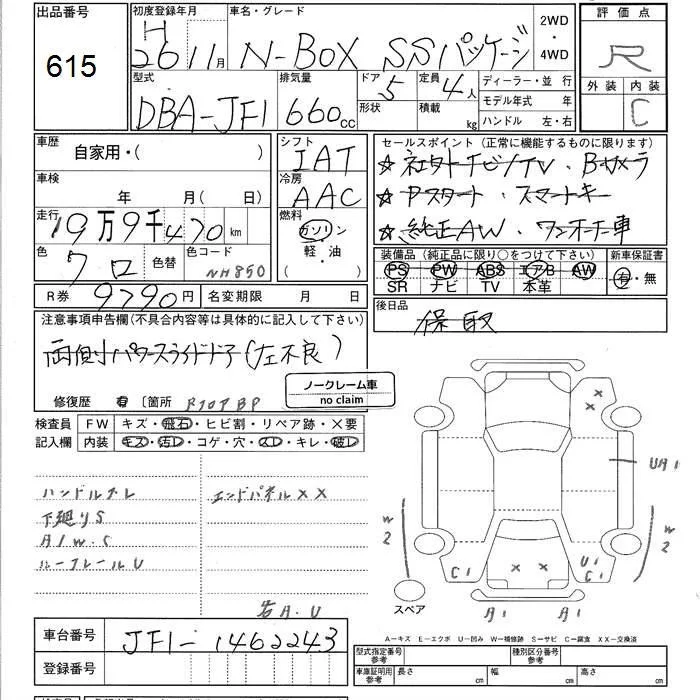 出品番号 615
初度登録年月 H 26 11月
車名・グレード N-BOX SSパッケージ
2WD・4WD
評価点 R
外装 内装 C
型式 DBA-JF1
排気量 660cc
ドア 5 形状
定員 4人 積載 kg
ディーラー・並行
モデル年式 年
ハンドル 左・右
車歴 自家用・( )
シフト IAT
セールスポイント(正常に機能するものに限ります)
★社外ナビ/TV・Bカメラ
★Pスタート・スマートキー
★純正AW・ワンオーナー車
車検 年 月( 日)
冷房 AAC
走行 19万9千470km
燃料 ガソリン・軽・油( )
色 クロ 色替 色コード NH850
装備品(純正品に限り○をつけて下さい) 新車保証書
PS PW ABS エアB AW 有・無
SR ナビ TV 本革
R券 9790円 名変期限 月 日
後日品 保 取
注意事項申告欄(不具合内容等は具体的に記入して下さい)
両側パワースライドドア(左不良)
修復歴 有 〔箇所
ノークレーム車
no claim
検査員記入欄
FW キズ・飛石・ヒビ割・リペア跡・X要
内装 キズ・汚レ・コゲ・穴・スレ・キレ・破レ
ハンドルスレ エンドパネルXX
下廻りS
A/W.S
ルーフレールU
右A.U
X X
UA1
W2 W2
C1 X X U1 C1
スペア A1 A1
車台番号 JF1-1462243
登録番号
A-キズ E-エクボ U-凹み W-補修跡 S-サビ C-腐食 XX-交換済
型式指定番号 参考 種別区分番号 参考
車庫証明用 参考 長さ 幅 高さ